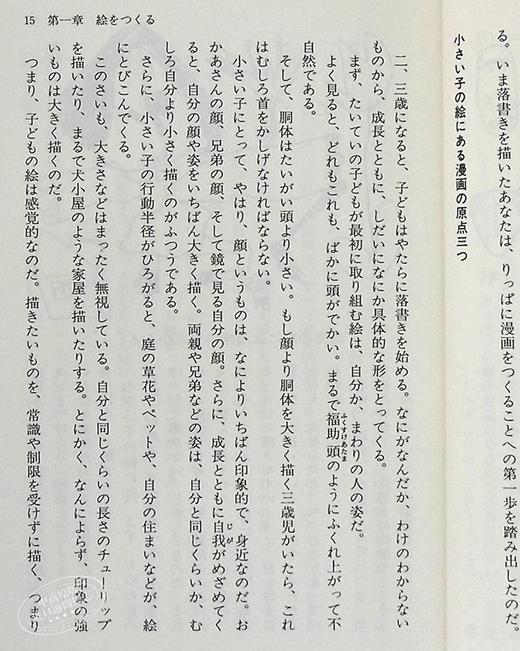 15　第一章　絵をつくる
る。いま落書きを描いたあなたは、りっぱに漫画をつくることへの第一歩を踏み出したのだ。
小さい子の絵にある漫画の原点三つ
二、三歳になると、子どもはやたらに落書きを始める。なにがなんだか、わけのわからない
ものから、成長とともに、しだいになにか具体的な形をとってくる。
まず、たいていの子どもが最初に取り組む絵は、自分か、まわりの人の姿だ。
よく見ると、どれもこれも、ばかに頭がでかい。まるで福助頭のようにふくれ上がって不
ふくすけあたま
自然である。
そして、胴体はたいがい頭より小さい。もし顔より胴体を大きく描く三歳児がいたら、これ
はむしろ首をかしげなければならない。
小さい子にとって、やはり、顔というものは、なによりいちばん印象的で、身近なのだ。お
かあさんの顔、兄弟の顔、そして鏡で見る自分の顔。さらに、成長とともに自我がめざめてく
じが
ると、自分の顔や姿をいちばん大きく描く。両親や兄弟などの姿は、自分と同じくらいか、む
しろ自分より小さく描くのがふつうである。
さらに、小さい子の行動半径がひろがると、庭の草花やペットや、自分の住まいなどが、絵
にとびこんでくる。
このさいも、大きさなどはまったく無視している。自分と同じくらいの長さのチューリップ
を描いたり、まるで犬小屋のような家屋を描いたりする。とにかく、なんによらず、印象の強
いものは大きく描くのだ。
つまり、子どもの絵は感覚的なのだ。描きたいものを、常識や制限を受けずに描く、つまり